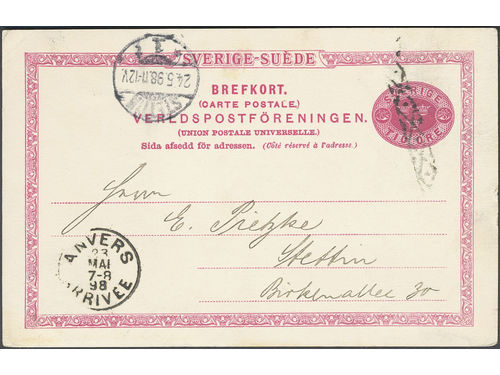 SVERIGE-SUÈDE
BREFKORT.
(CARTE POSTALE.)
VERLDSPOSTFÖRENINGEN.
(UNION POSTALE UNIVERSELLE.)
Sida afsedd för adressen. (Côté réservé à l'adresse.)
SVERIGE
TIO ÖRE
24.5.98.11-12V.
STETTIN
1
Herrn
E. Pietzke
Stettin
Birkenallee 30
ANVERS
23
MAI
7-8
98
ARRIVÉE